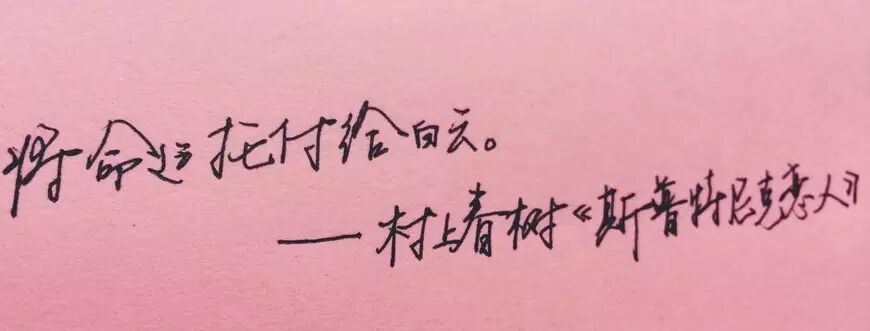 将命运托付给白云。
——村上春树《斯普特尼克恋人》